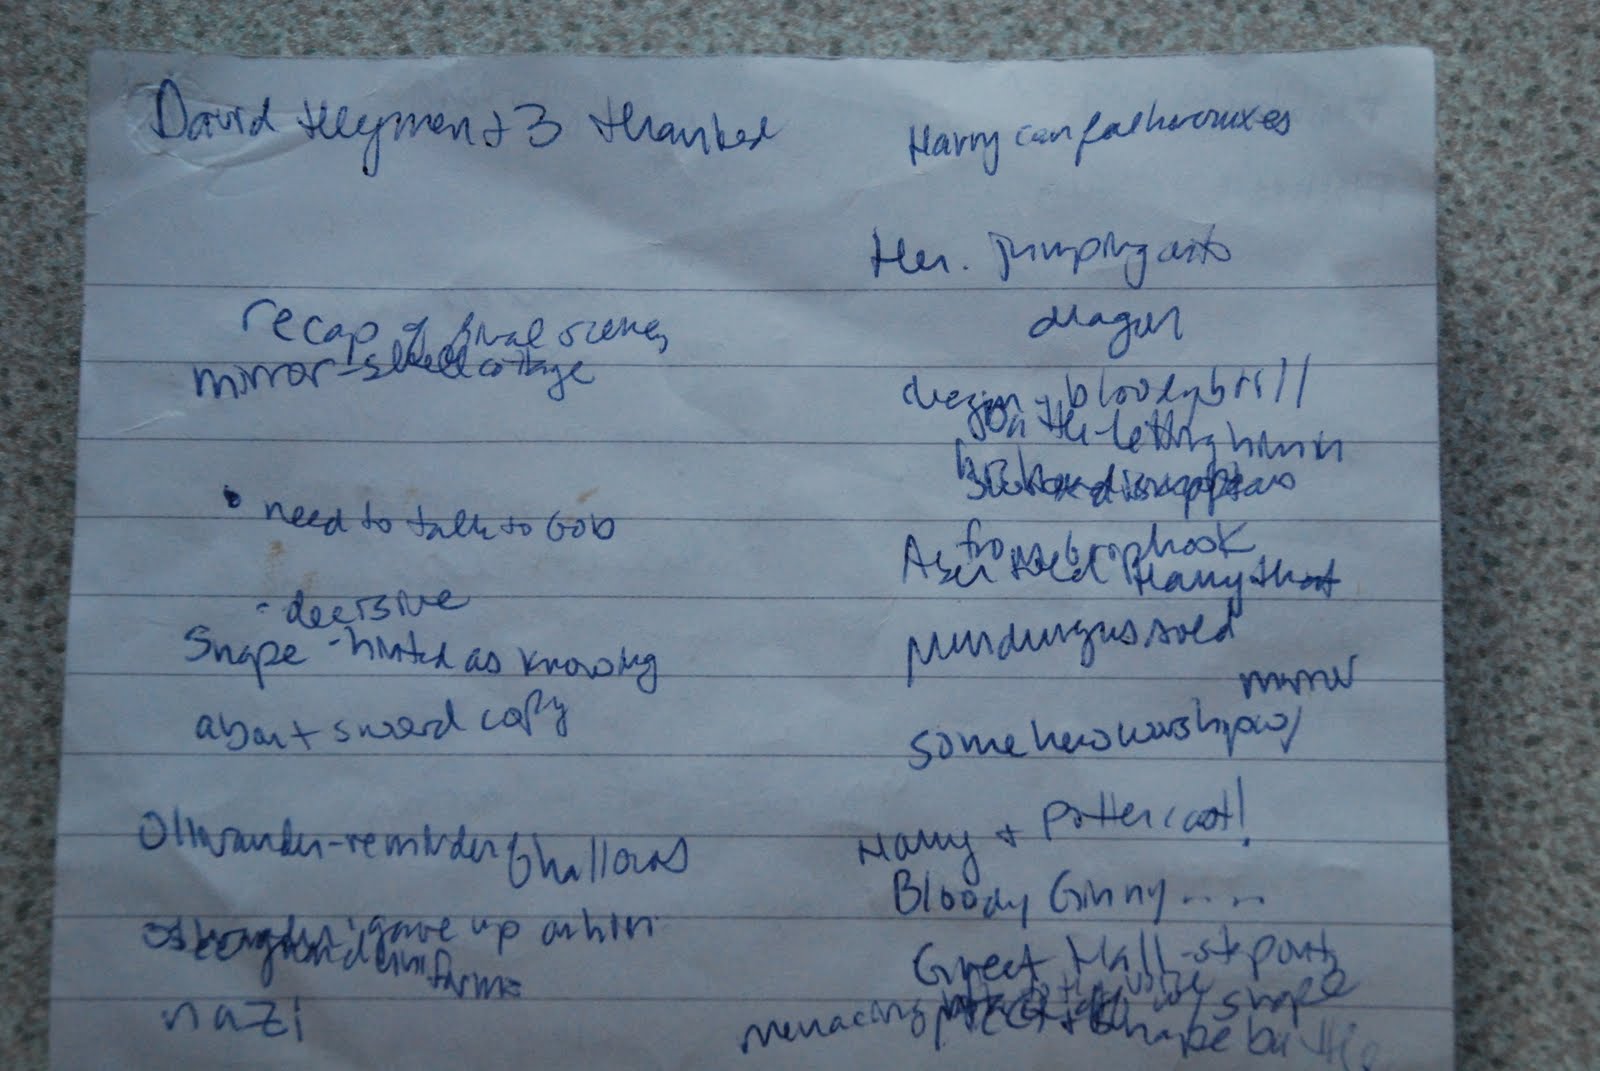 David Heyman + 3 thanked
recap of final scenes
mirror - shell cottage
• need to talk to Gob
- decisive
Snape - hinted as knowing
about sword copy
Ollivander - reminder of hallows
gave up on him
nazi
Harry can feel horcruxes
Her. jumping onto
dragon
dragon - bloody brill
letting him in
disappears
from Griphook
Aber told Harry that
Mundungus sold
mirror
some hero worship w/
Harry + Pottercast!
Bloody Ginny.....
Great Hall - st pours
menacing
McG + Snape battle